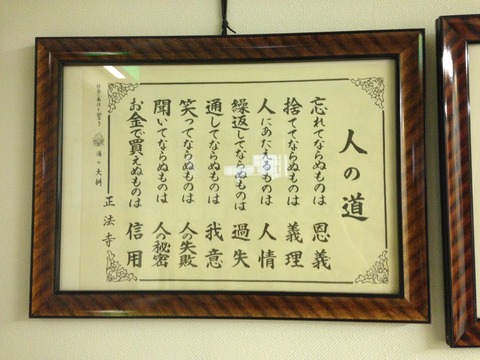 人の道
忘れてならぬものは 恩義
捨ててならぬものは 義理
人にあたえるものは 人情
繰返してならぬものは 過失
通してならぬものは 我意
笑ってならぬものは 人の失敗
聞いてならぬものは 人の秘密
お金で買えぬものは 信用
正法寺